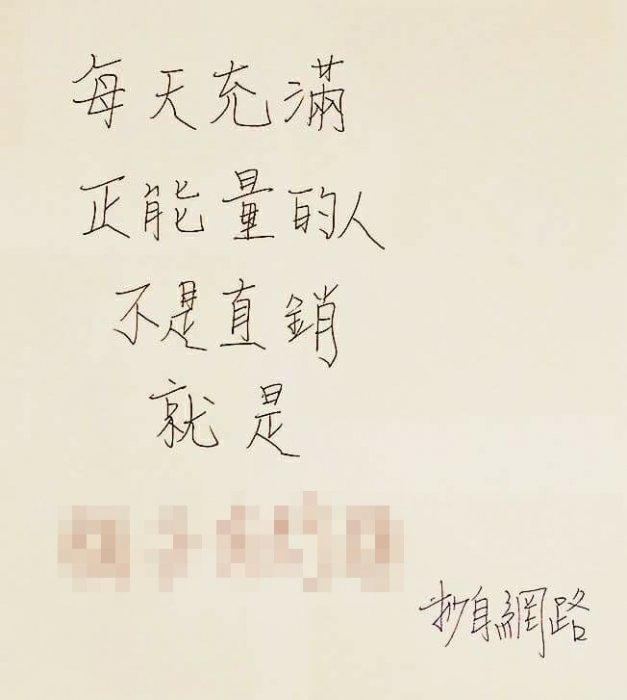 每天充滿
正能量的人
不是直銷
就是
抄自網路